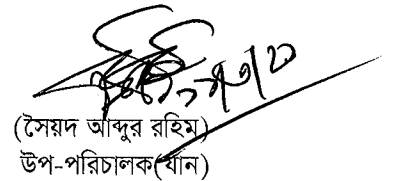 (সৈয়দ আব্দুর রহিম)
উপ-পরিচালক(যান)